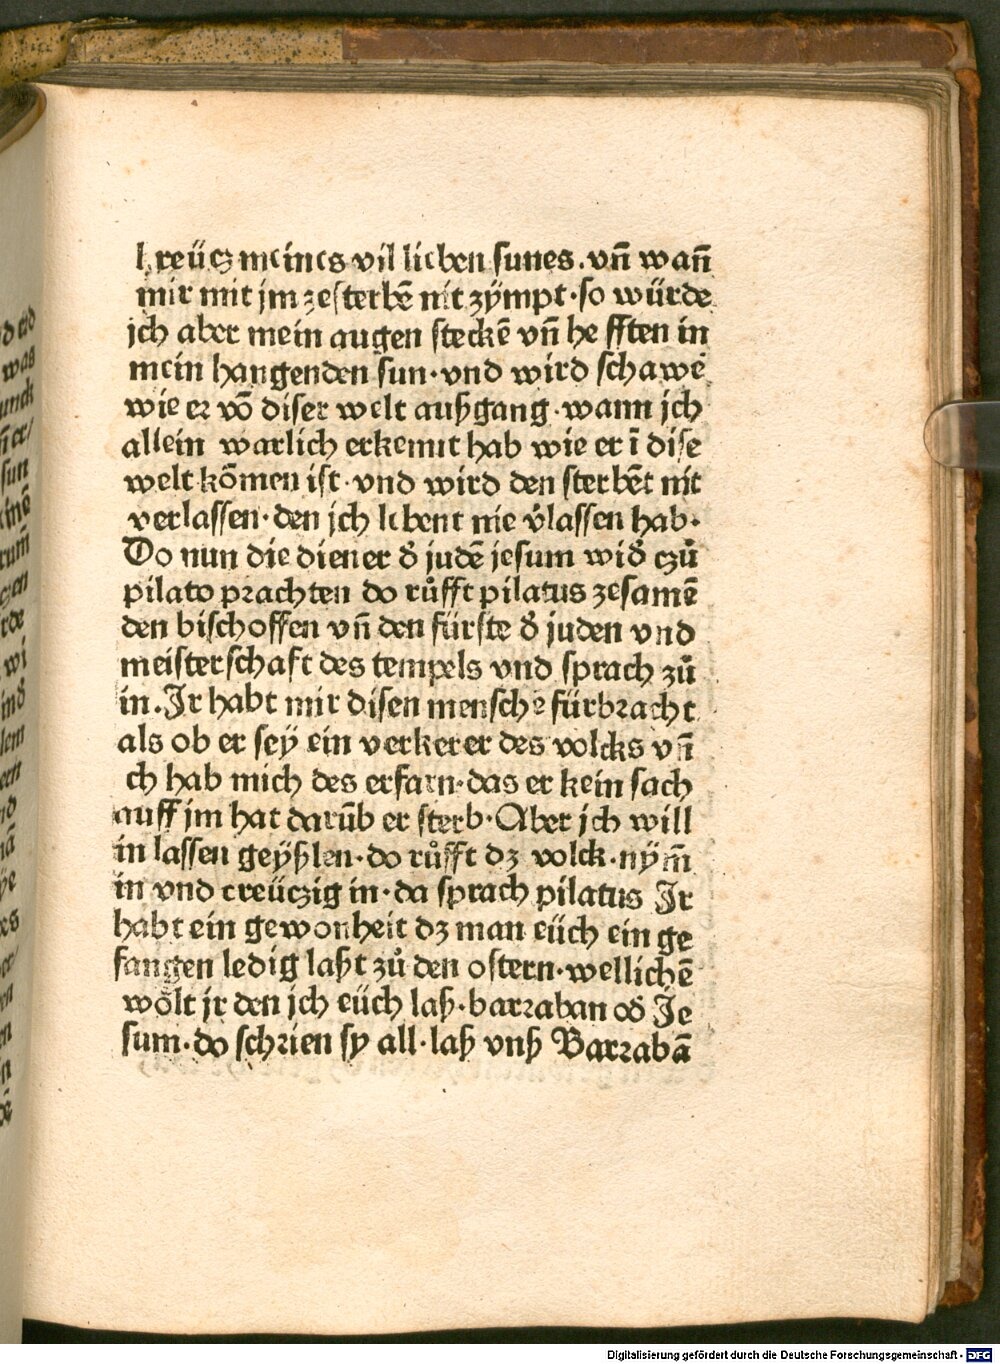 kreücz meines vil lieben sunes. vñ wañ
mir mit jm zesterbē nit zÿmpt·so würde
jch aber mein augen steckē vñ hefften in
mein hangenden sun·vnd wird schawē
wie er vō diser welt außgang·wann jch
allein warlich erkennt hab wie er ī dise
welt kōmen ist·vnd wird den sterbēt nit
verlassen·den jch lebent nie v̉lassen hab·
Do nun die diener d̉ judē jesum wid̉ czů
pilato prachten do růfft pilatus zesamē
den bischoffen vñ den fürste d̉ juden vnd
meisterschaft des tempels vnd sprach zů
in. Jr habt mir disen menschē fürbracht
als ob er seÿ ein verkerer des volcks vñ
ch hab mich des erfarn·das er kein sach
auff jm hat darūb er sterb·Aber jch will
in lassen geÿßlen·do růfft dz volck·nÿm̄
in vnd creüczig in·da sprach pilatus Jr
habt ein gewonheit dz man eüch ein ge
fangen ledig laßt zů den ostern·wellichē
wölt jr den jch eüch laß·barraban od̉ Je
sum·do schrien sy all·laß vnß Barrabā